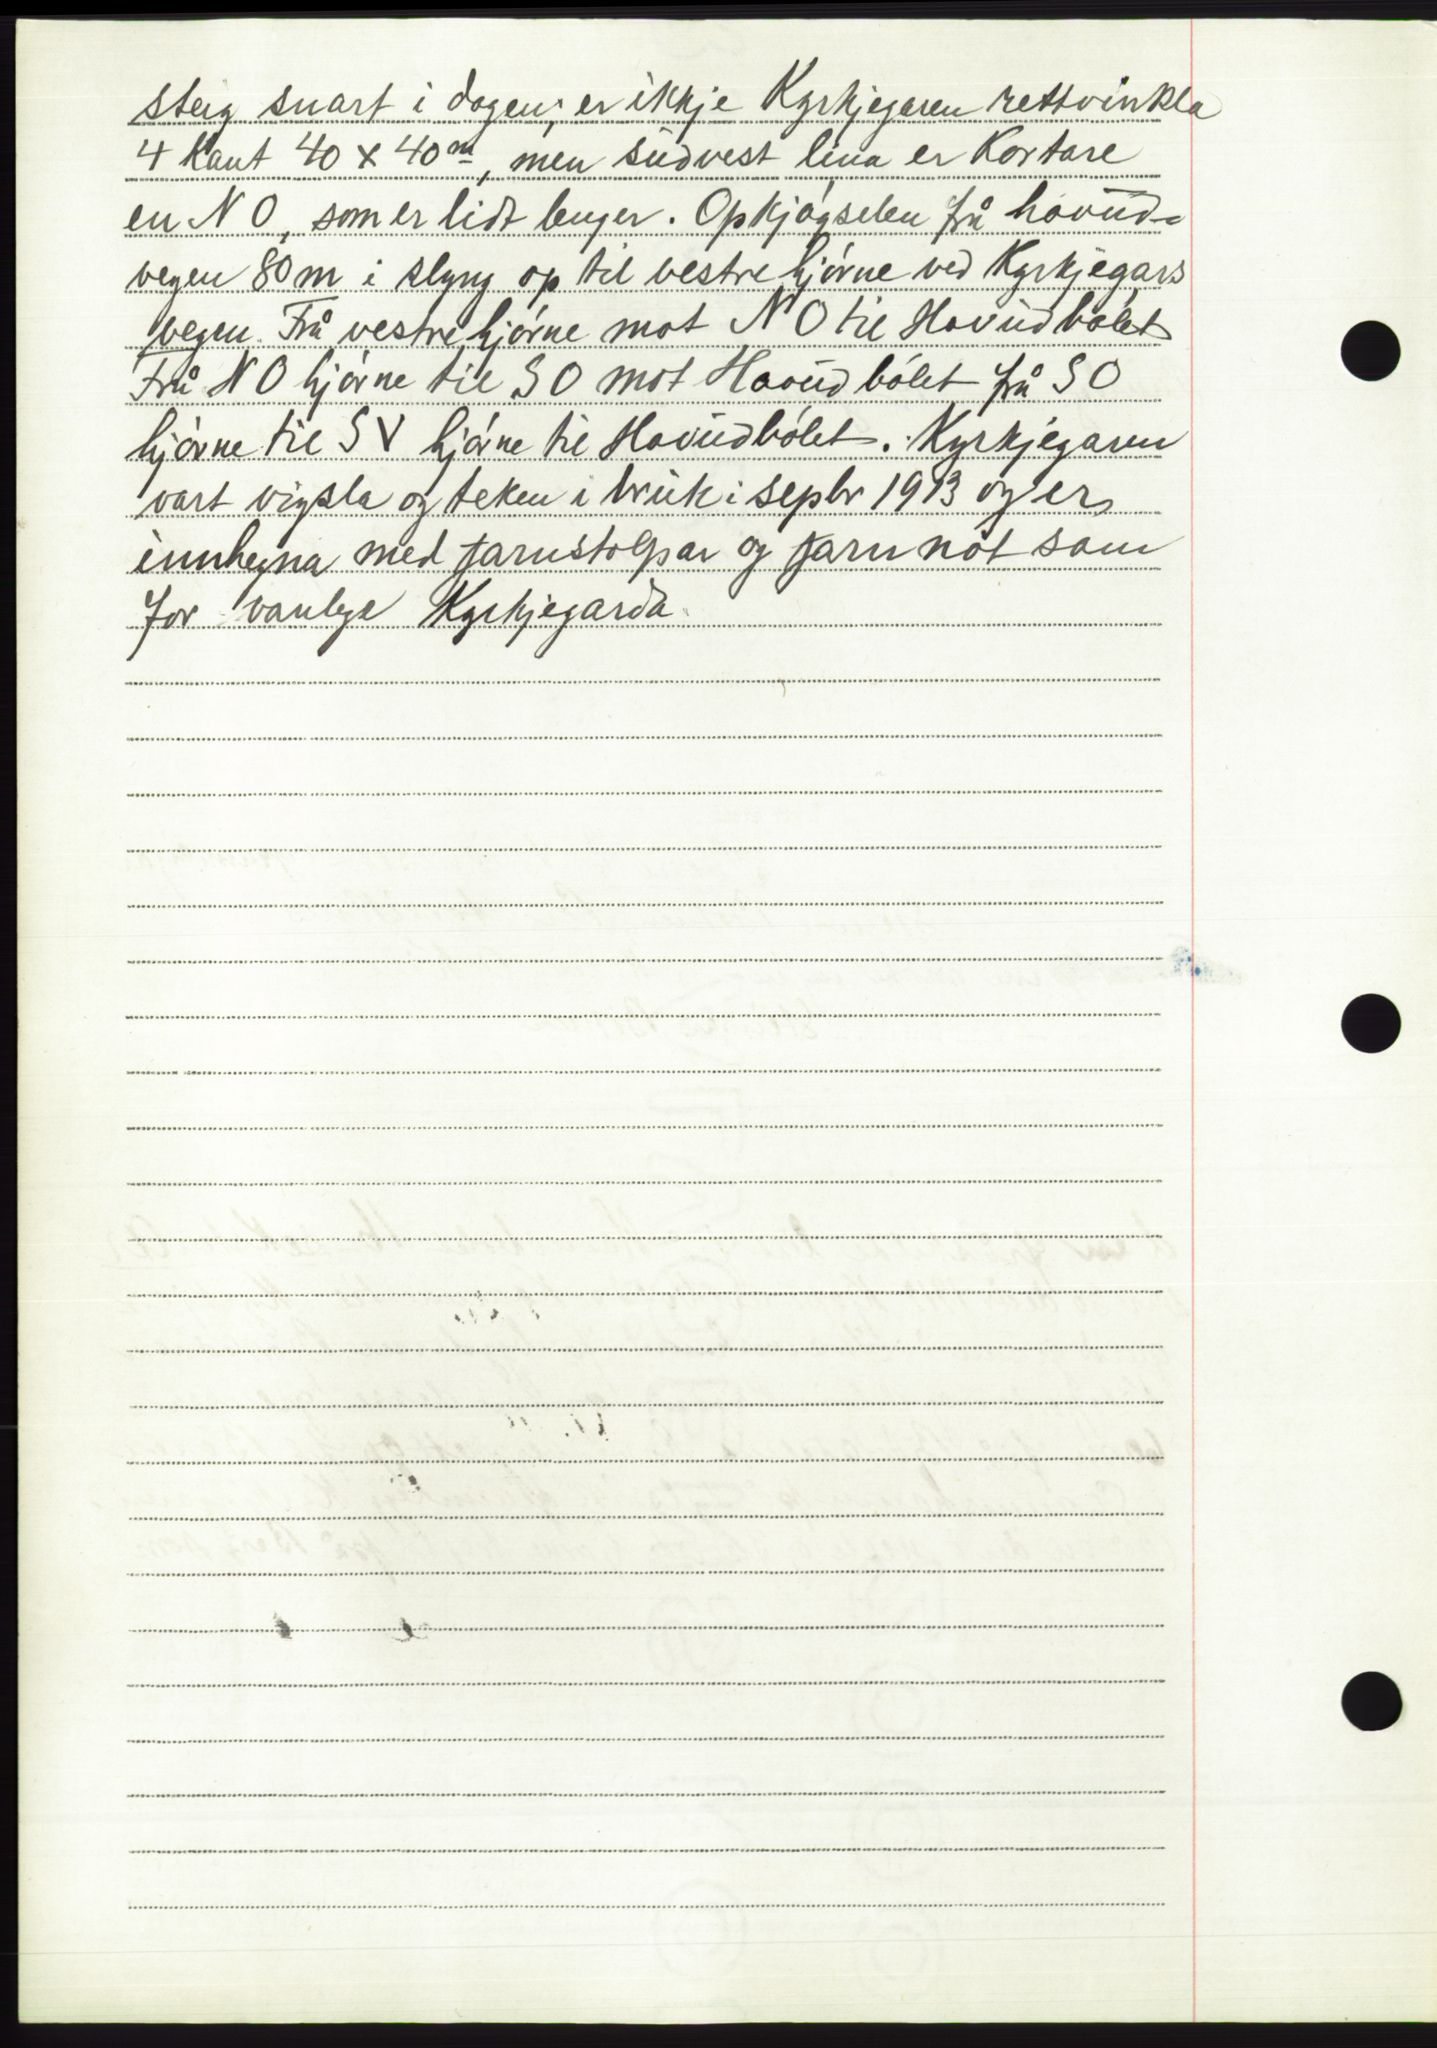 steig snart i dagen; er ikkje Kyrkjegaren rettvinkla
4 kant 40 x 40 m, men sudvest lina er Kortare
en N O, som er lidt lenger. Opkjøgselen frå hovud-
vegen 80 m i slyng op til vestre hjørne ved Kyrkjegars
vegen. Frå vestre hjørne mot N O til Hovudbølet
Frå N O hjørne til S O mot Hovudbølet frå S O
hjørne til S V hjørne til Hovudbølet. Kyrkjegaren
vart vigsla og teken i bruk i sepbr 1913 og er
innhegna med jarnstolpar og jarn nót som
for vanlege Kyrkjegarda